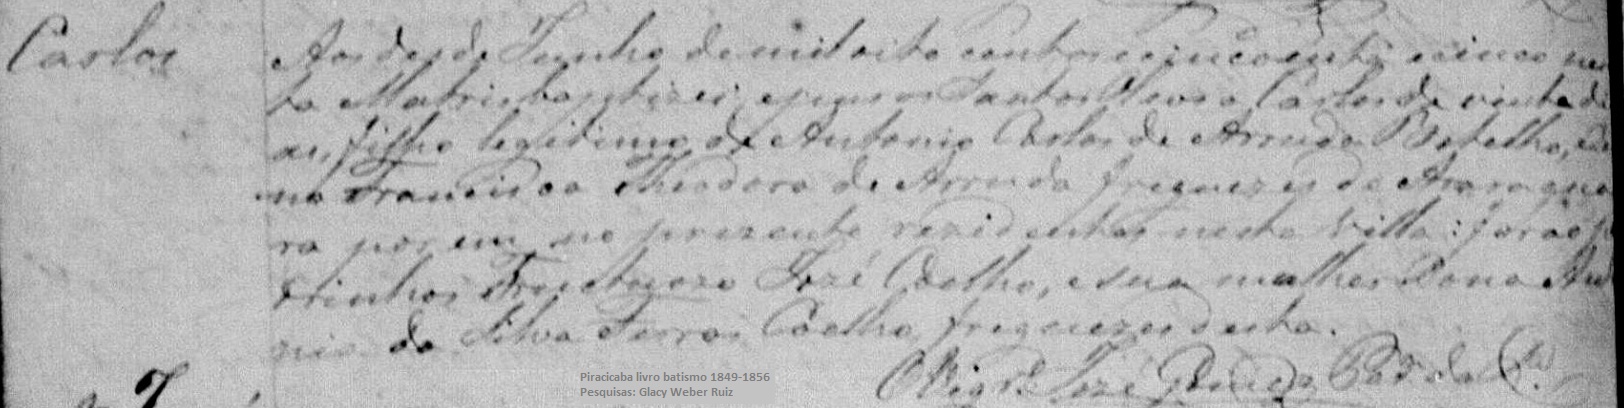 Carlos
Aos des de Junho de mil oito centos e cincoenta e cinco nes
ta Matris baptizei, e puz os Santos Oleos a Carlos de vinte di
as, filho legitimo de Antonio Carlos de Arruda Botelho, e de
na Francisca Theodora de Arruda freguezes de Araraqua
ra porem no prezente rezidentes nesta Villa: forao pa
drinhos Fructuozo José Coelho, e sua mulher Dona An
na da Silva Ferras Coelho, freguezes desta.
O Vigr.º José Gomes
Piracicaba livro batismo 1849-1856
Pesquisas: Glacy Weber Ruiz